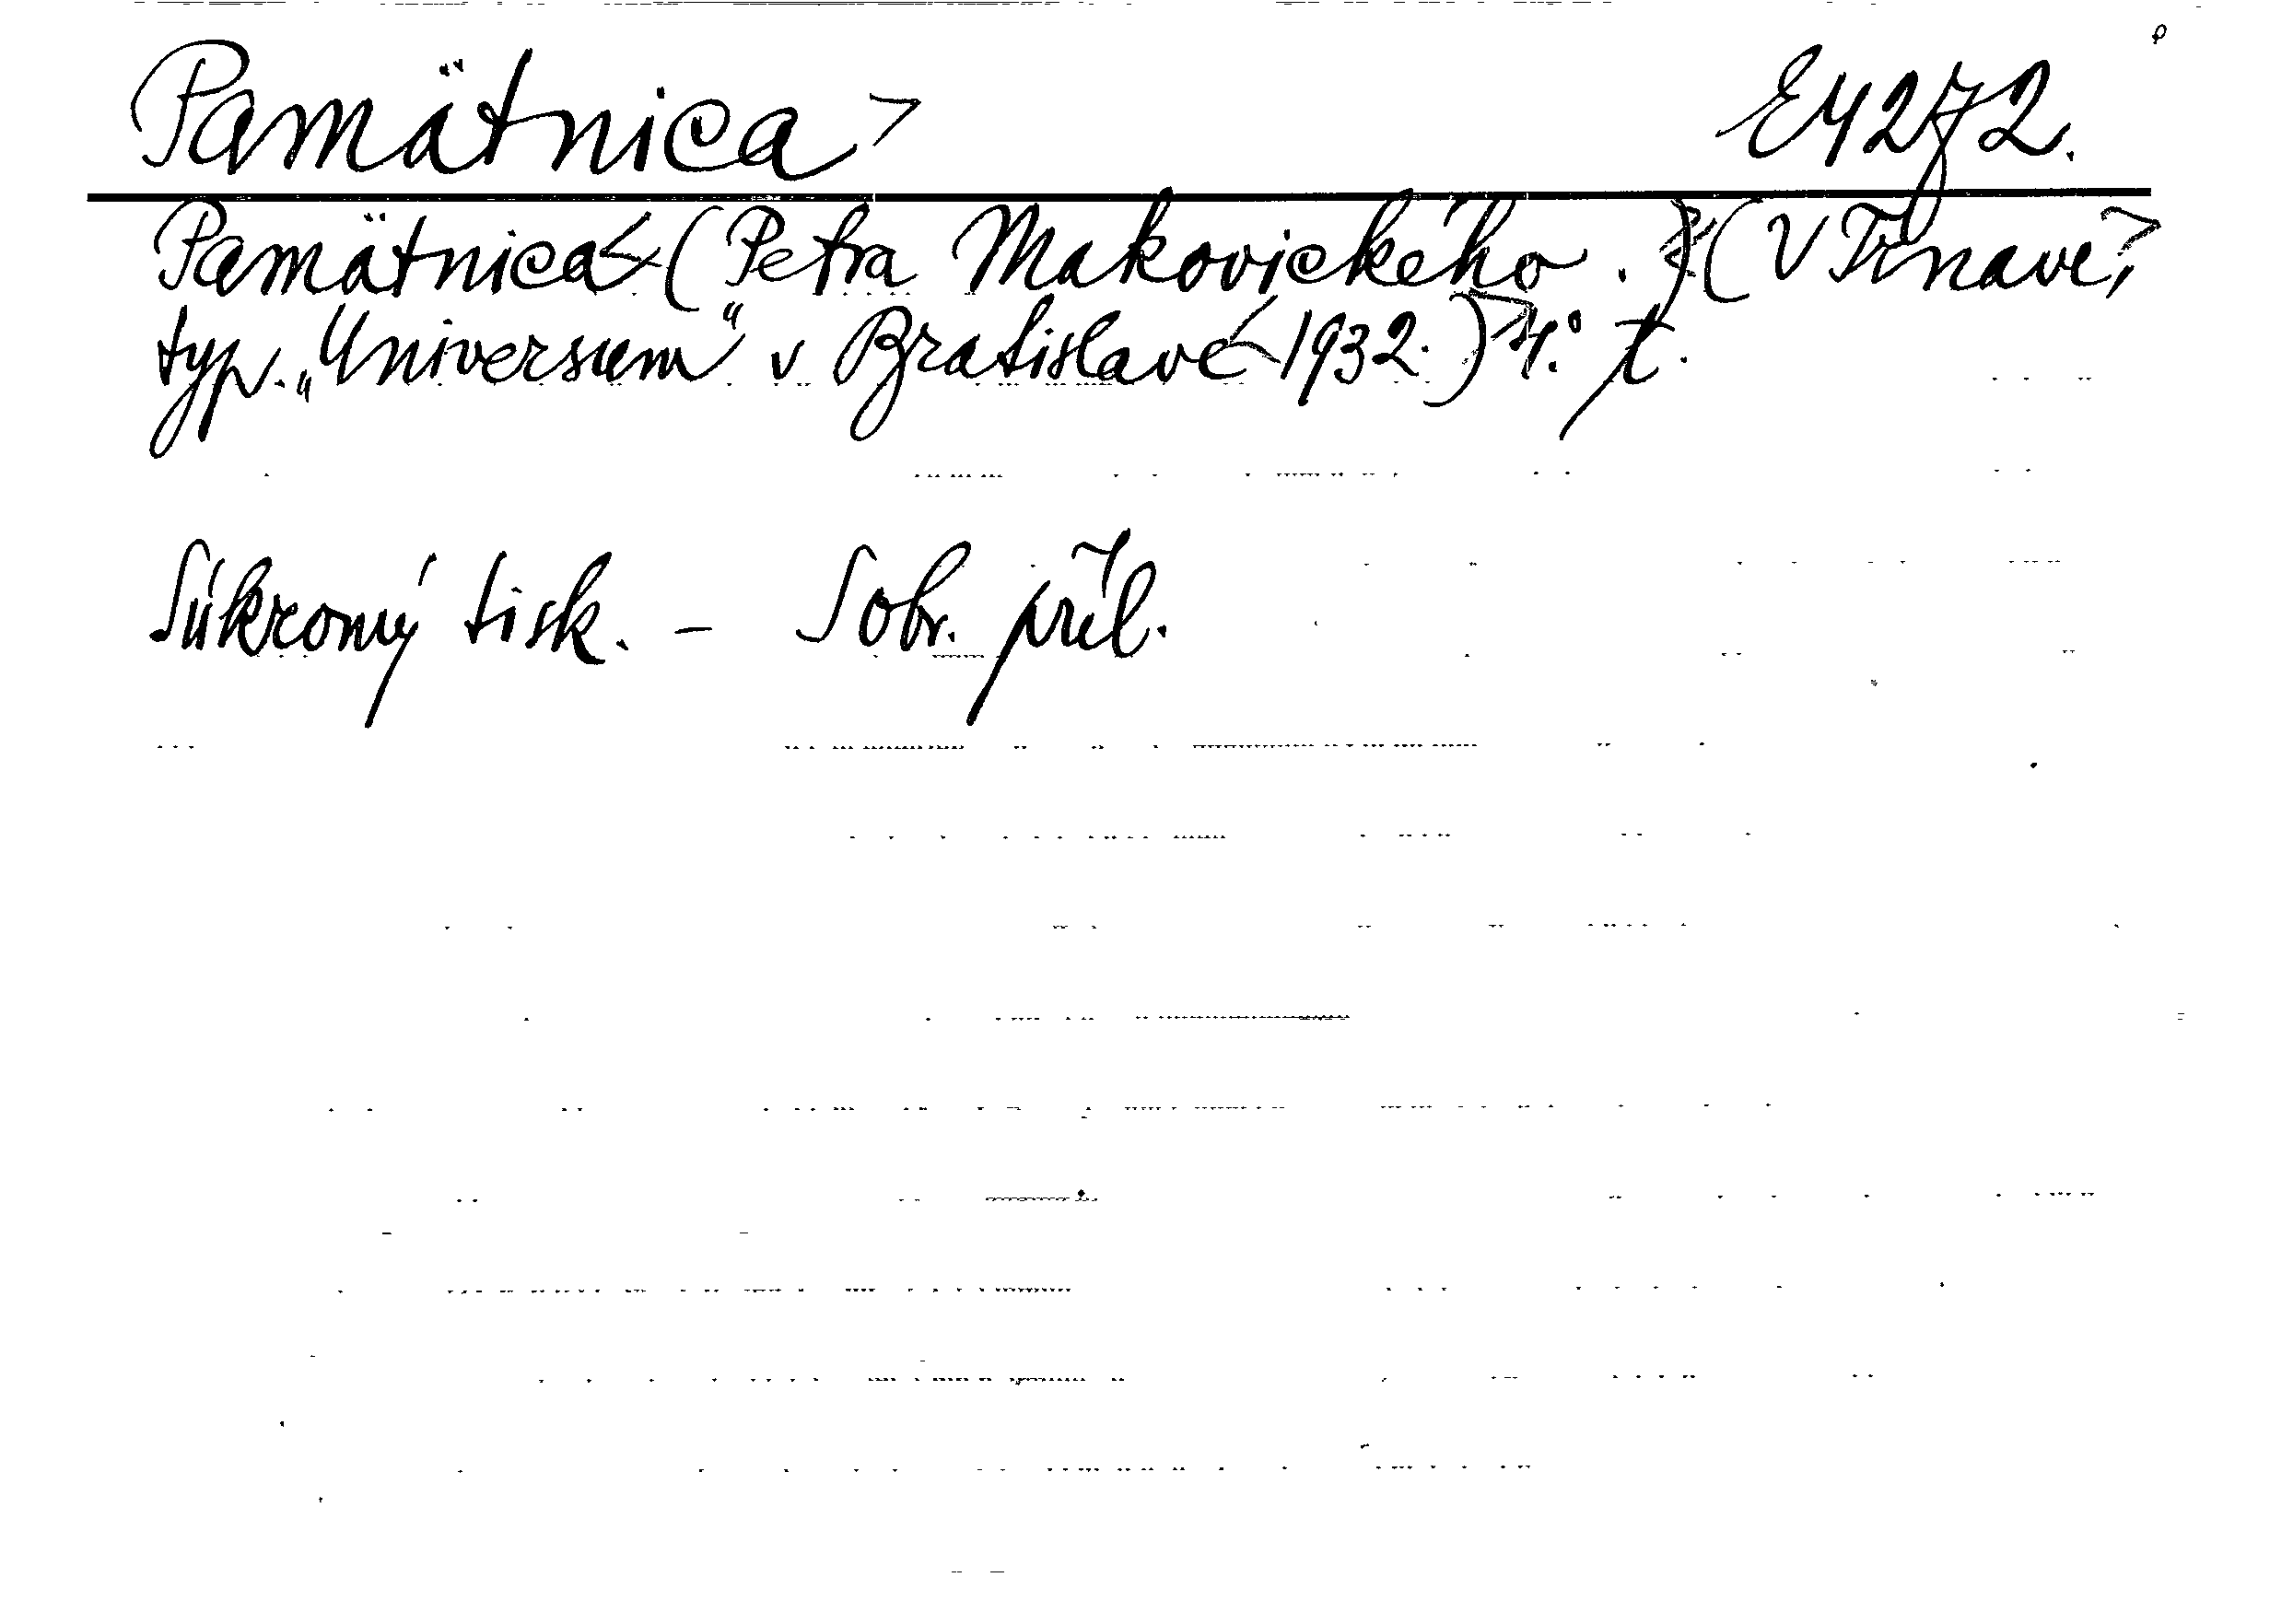 Pamätnica > E4272.
Pamätnica < (Petra Makovického.) (V Trnave,
typ. „Universum“ v Bratislave 1932.) 4.° t.
Súkromý tisk. – Sobr. příl.